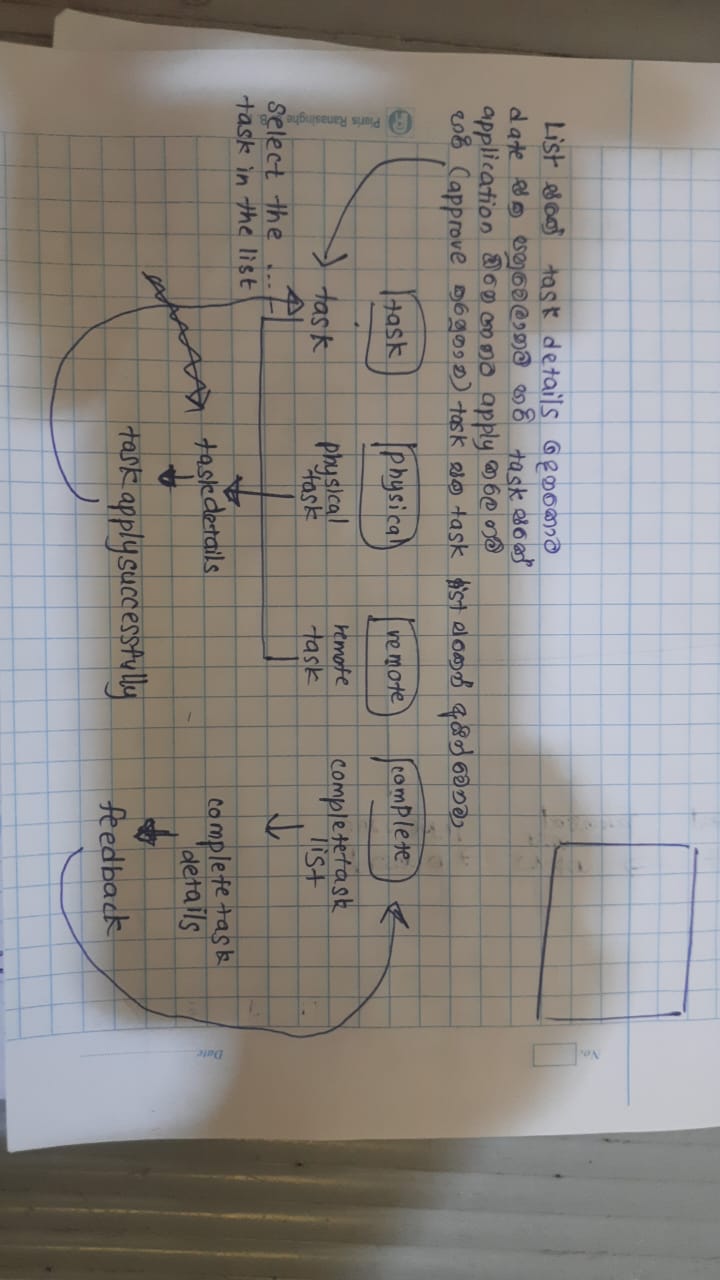 List එකේ task details දෙනකොට
date එක පහුවෙලානම් හරි task එකේ
application ඕනෙ ගානට apply කලා නම්
හරි (approve කරපුගාන) task එක task list එකෙන් අයින් වෙනවා
task physical remote complete
task physical task remote task complete task list
select the ....
task in the list
task details
complete task
details
task apply successfully
feedback
Piuris Ranasinghe
No.
Date